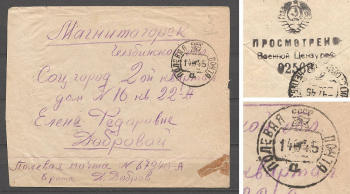 Магнитогорск
Челябинской
Соц город 2ой квартал
дом N 16 кв 22-А
Елене Федаровне
Добровой
Полевая почта N 67940-А
Д. Добров
ПОЛЕВАЯ ПОЧТА
СССР
14 45
ПРОСМОТРЕНО
Военной Цензурой
СССР
ПОЛЕВАЯ ПОЧТА
14 45